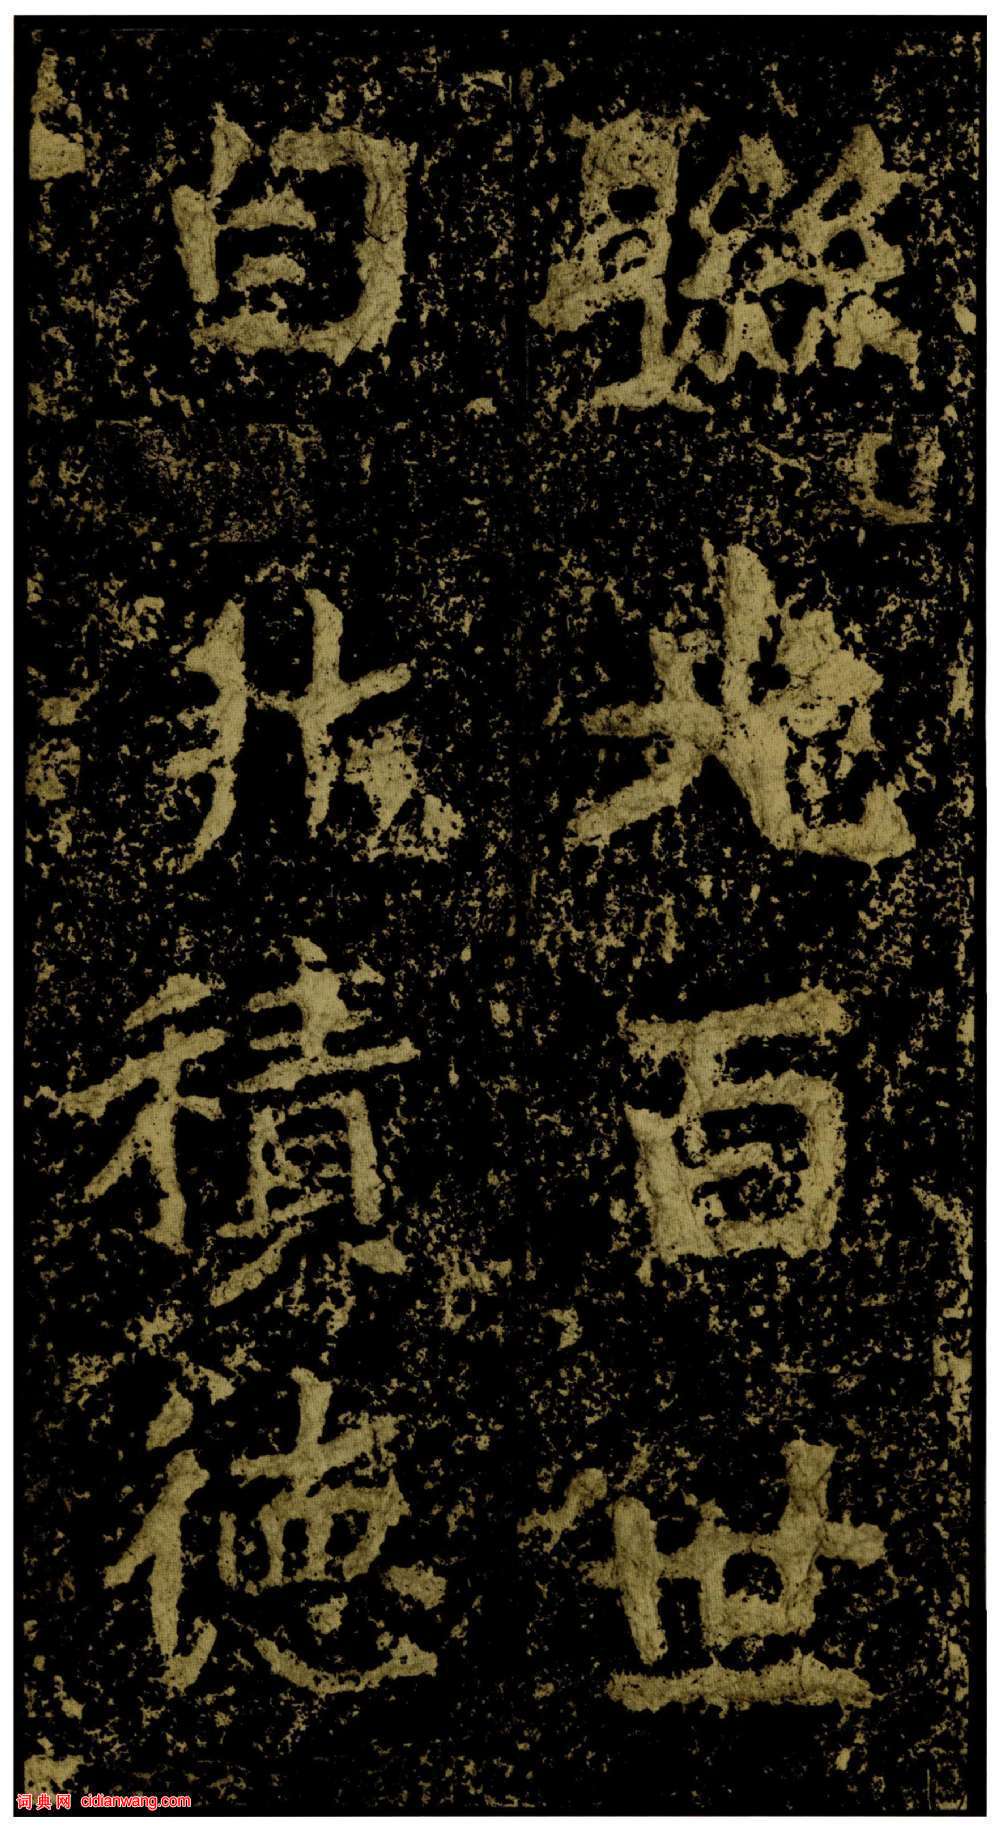 聯光百世
自非積德
词典网 cidianwang.com